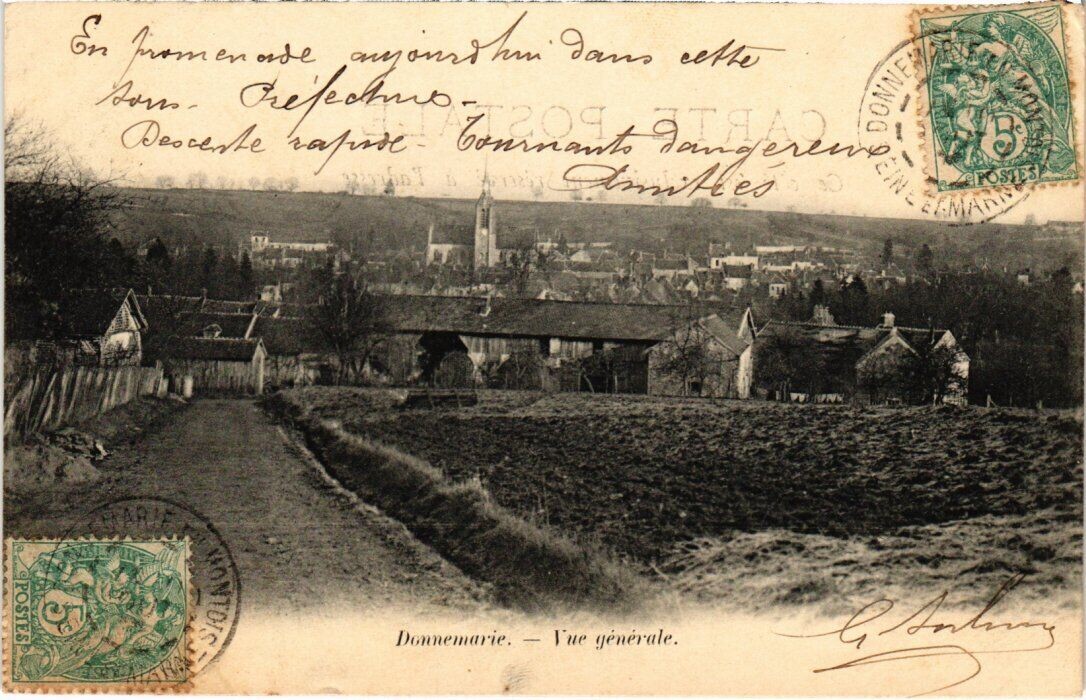 En promenade aujourd'hui dans cette
sous-Préfecture-
Descente rapide - Tournants dangereux
Amitiés
CARTE POSTALE
5c
POSTES
DONNEMARIE EN MONTOIS
SEINE ET MARNE
5c
POSTES
DONNEMARIE EN MONTOIS
Donnemarie. — Vue générale.